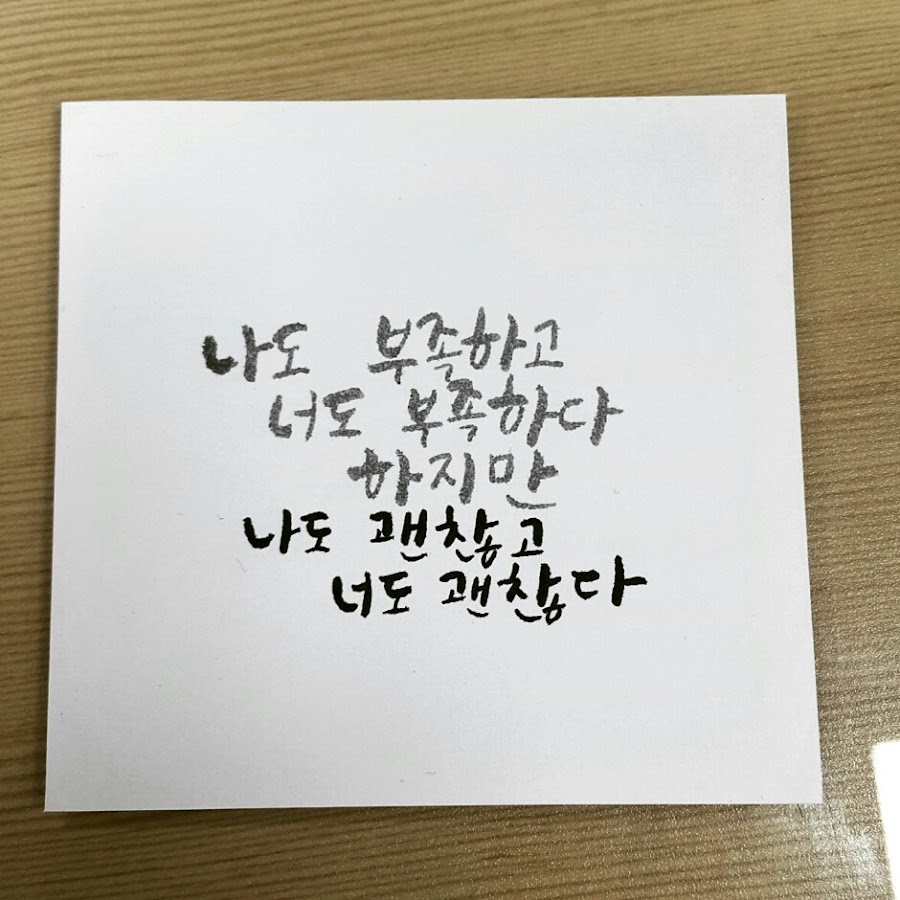 나도 부족하고
너도 부족하다
하지만
나도 괜찮고
너도 괜찮다